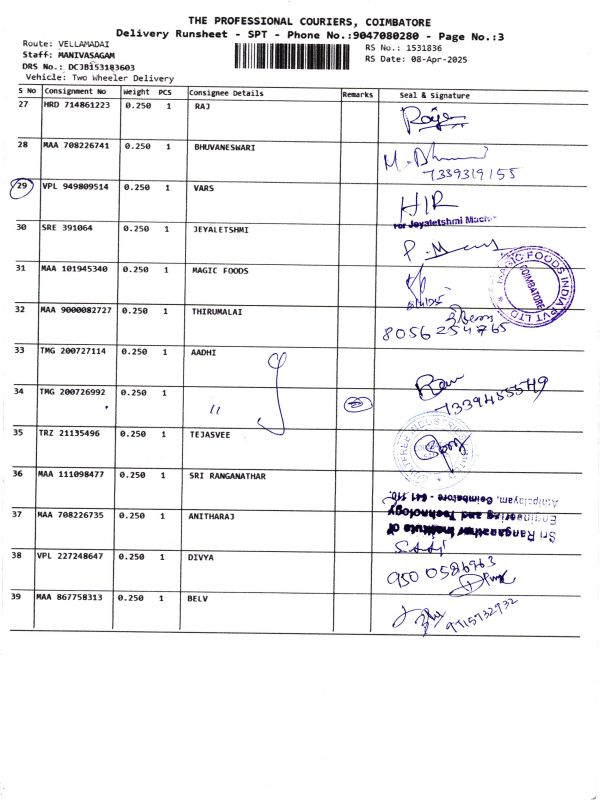 THE PROFESSIONAL COURIERS, COIMBATORE
Delivery Runsheet - SPT - Phone No.:9047080280 - Page No.:3
Route: VELLAMADAI
Staff: MANIVASAGAM
DRS No.: DCJB153183603
Vehicle: Two Wheeler Delivery
RS No.: 1531836
RS Date: 08-Apr-2025
S No Consignment No Weight PCS Consignee Details Remarks Seal & Signature
27 HRD 714861223 0.250 1 RAJ
28 MAA 708226741 0.250 1 BHUVANESWARI
7339319155
29 VPL 949809514 0.250 1 VARS
HIR
For Jeyaletshmi
30 SRE 391064 0.250 1 JEYALETSHMI
31 MAA 101945340 0.250 1 MAGIC FOODS
MAGIC FOODS INDIA PVT LTD
COIMBATORE
32 MAA 9000082727 0.250 1 THIRUMALAI
8056254765
33 TMG 200727114 0.250 1 AADHI
34 TMG 200726992 0.250 1 "
7339455549
35 TRZ 21135496 0.250 1 TEJASVEE
36 MAA 111098477 0.250 1 SRI RANGANATHAR
Sri Ranganathar Institute of
Engineering and Technology
Athipalayam, Coimbatore - 641 110.
37 MAA 708226735 0.250 1 ANITHARAJ
38 VPL 227248647 0.250 1 DIVYA
9500586963
39 MAA 867758313 0.250 1 BELV
9715732932